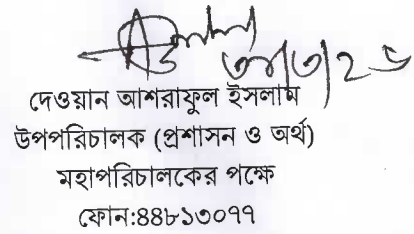 দেওয়ান আশরাফুল ইসলাম
উপপরিচালক (প্রশাসন ও অর্থ)
মহাপরিচালকের পক্ষে
ফোন:৪৪৮১৩০৭৭